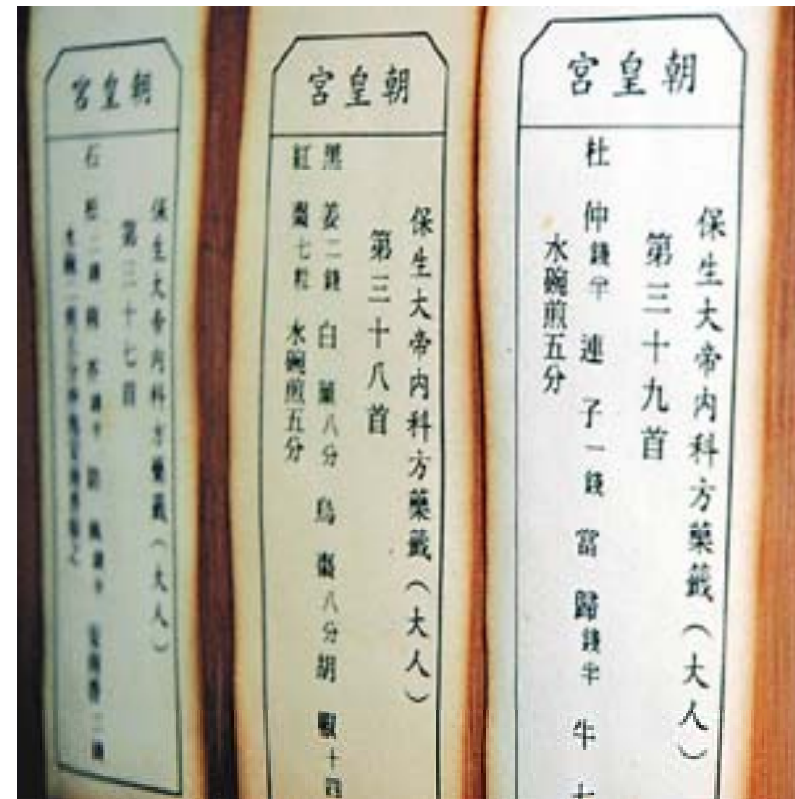 朝皇宮
保生大帝內科方藥籤（大人）
第三十九首
杜仲錢半 連子一錢 當歸錢半 牛七
水碗煎五分
朝皇宮
保生大帝內科方藥籤（大人）
第三十八首
黑姜二錢 白 八分 烏棗八分 胡椒十四
紅棗七粒 水碗煎五分
朝皇宮
保生大帝內科方藥籤（大人）
第三十七首
石 二錢 芥錢半 防風錢半 二錢
水碗